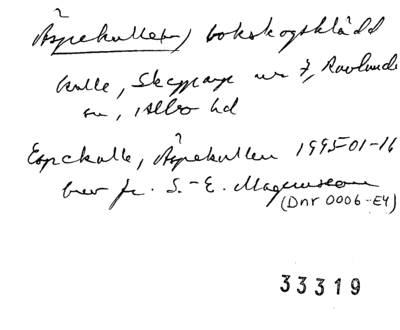 Äspekullen, bokskogsklädd
kulle, Skeppar nr 7, Ravlunda
sn, Albo hd
Espekulle, Äspekullen 1995-01-16
brev fr. S.-E. Magnusson
(Dnr 0006-E4)
33319